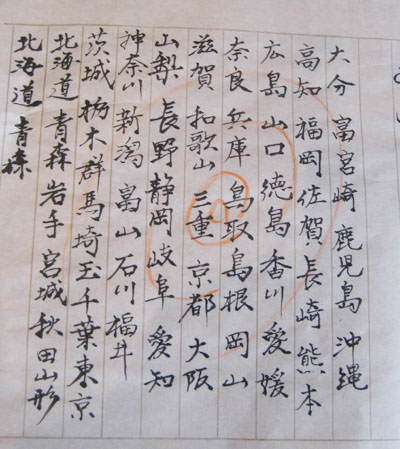 北海道 青森
北海道 青森 岩手 宮城 秋田 山形
茨城 栃木 群馬 埼玉 千葉 東京
神奈川 新潟 富山 石川 福井
山梨 長野 静岡 岐阜 愛知
滋賀 和歌山 三重 京都 大阪
奈良 兵庫 鳥取 島根 岡山
広島 山口 徳島 香川 愛媛
高知 福岡 佐賀 長崎 熊本
大分 富宮崎 鹿児島 沖縄